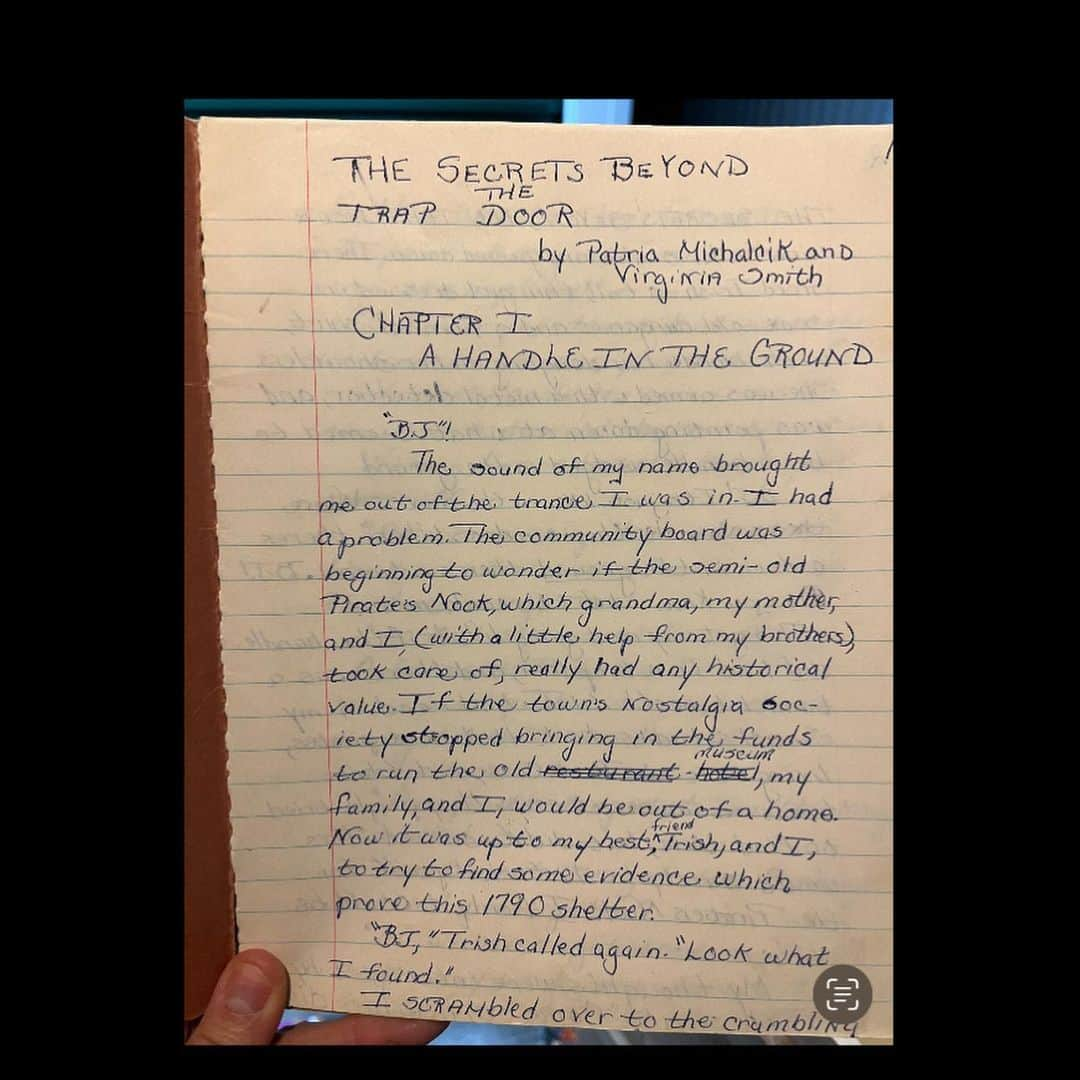 THE SECRETS BEYOND
THE
TRAP DOOR
by Patria Michalcik and
Virginia Smith
CHAPTER I
A HANDLE IN THE GROUND
"BJ"!
The sound of my name brought
me out of the trance I was in. I had
a problem. The community board was
beginning to wonder if the semi-old
Pirate's Nook, which grandma, my mother,
and I, (with a little help from my brothers),
took care of, really had any historical
value. If the town's Nostalgia Soc-
iety stopped bringing in the funds
museum
to run the old resturant hotel, my
family, and I, would be out of a home.
friend
Now it was up to my best, ^ Trish, and I,
to try to find some evidence which
prove this 1790 shelter.
"BJ," Trish called again. "Look what
I found."
I scrambled over to the crumbling